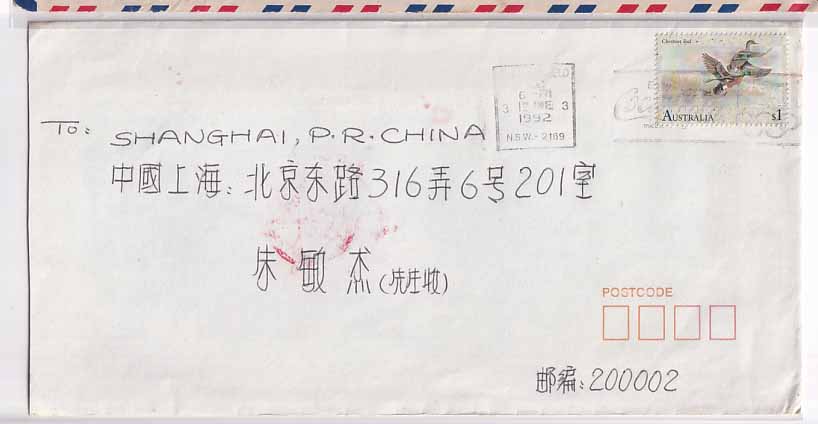 Chestnut Teal
AUSTRALIA $1
6 - PM
3 12 JNE 3
1992
N.S.W. - 2169
To: SHANGHAI, P.R.CHINA
中國上海: 北京东路316弄6号201室
朱敏杰(先生收)
POSTCODE
邮编: 200002